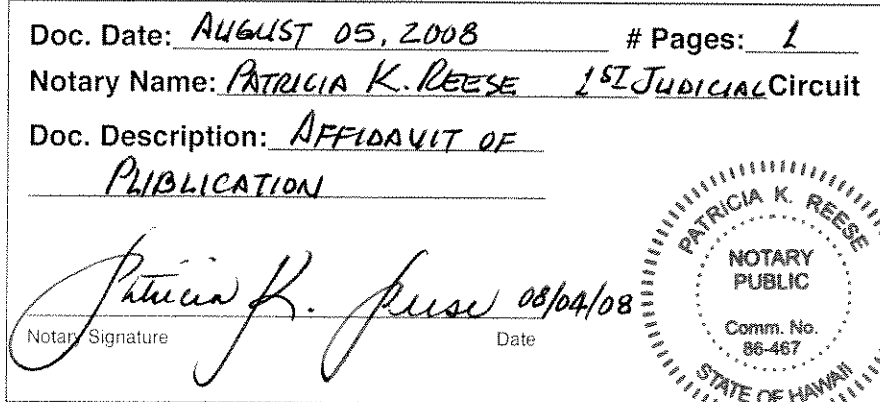 Doc. Date: AUGUST 05, 2008 # Pages: 1
Notary Name: PATRICIA K. REESE 1ST JUDICIAL Circuit
Doc. Description: AFFIDAVIT OF
PUBLICATION
Patricia K. Reese 08/04/08
Notary Signature Date
PATRICIA K. REESE
NOTARY
PUBLIC
Comm. No.
86-467
STATE OF HAWAII